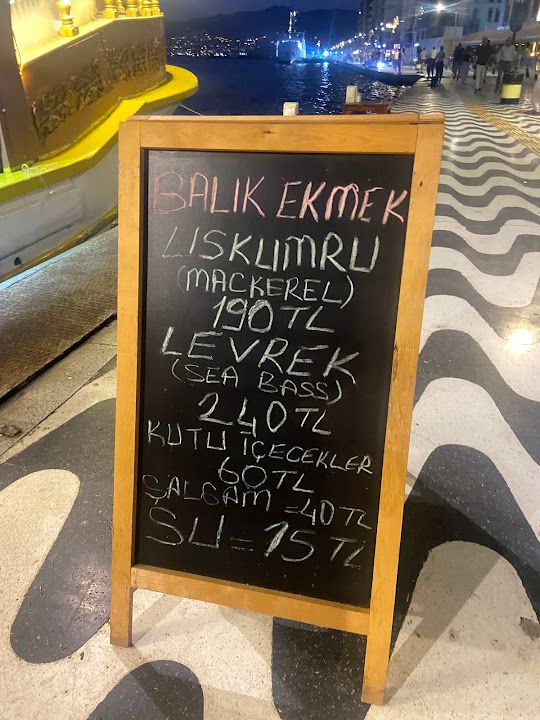 BALIK EKMEK
LISKUMRU
(MACKEREL)
190 TL
LEVREK
(SEA BASS)
240 TL
KUTU İÇECEKLER
60 TL
ŞALGAM =40 TL
SU = 15 TL